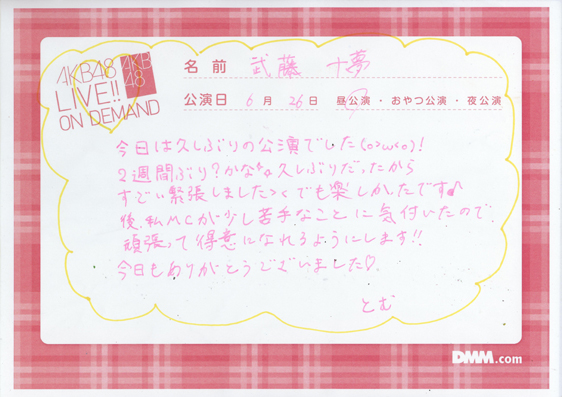 AKB48
LIVE!!
ON DEMAND
AKB
48
名前 武藤 十夢
公演日 6月 26日 昼公演・おやつ公演・夜公演
今日は久しぶりの公演でした(o>ω<o)!
2週間ぶり?かな 久しぶりだったから
すごい緊張しました>< でも楽しかったです♪
後、私MCが少し苦手なことに気付いたので
頑張って得意になれるようにします!!
今日もありがとうございました♡
とむ
DMM.com